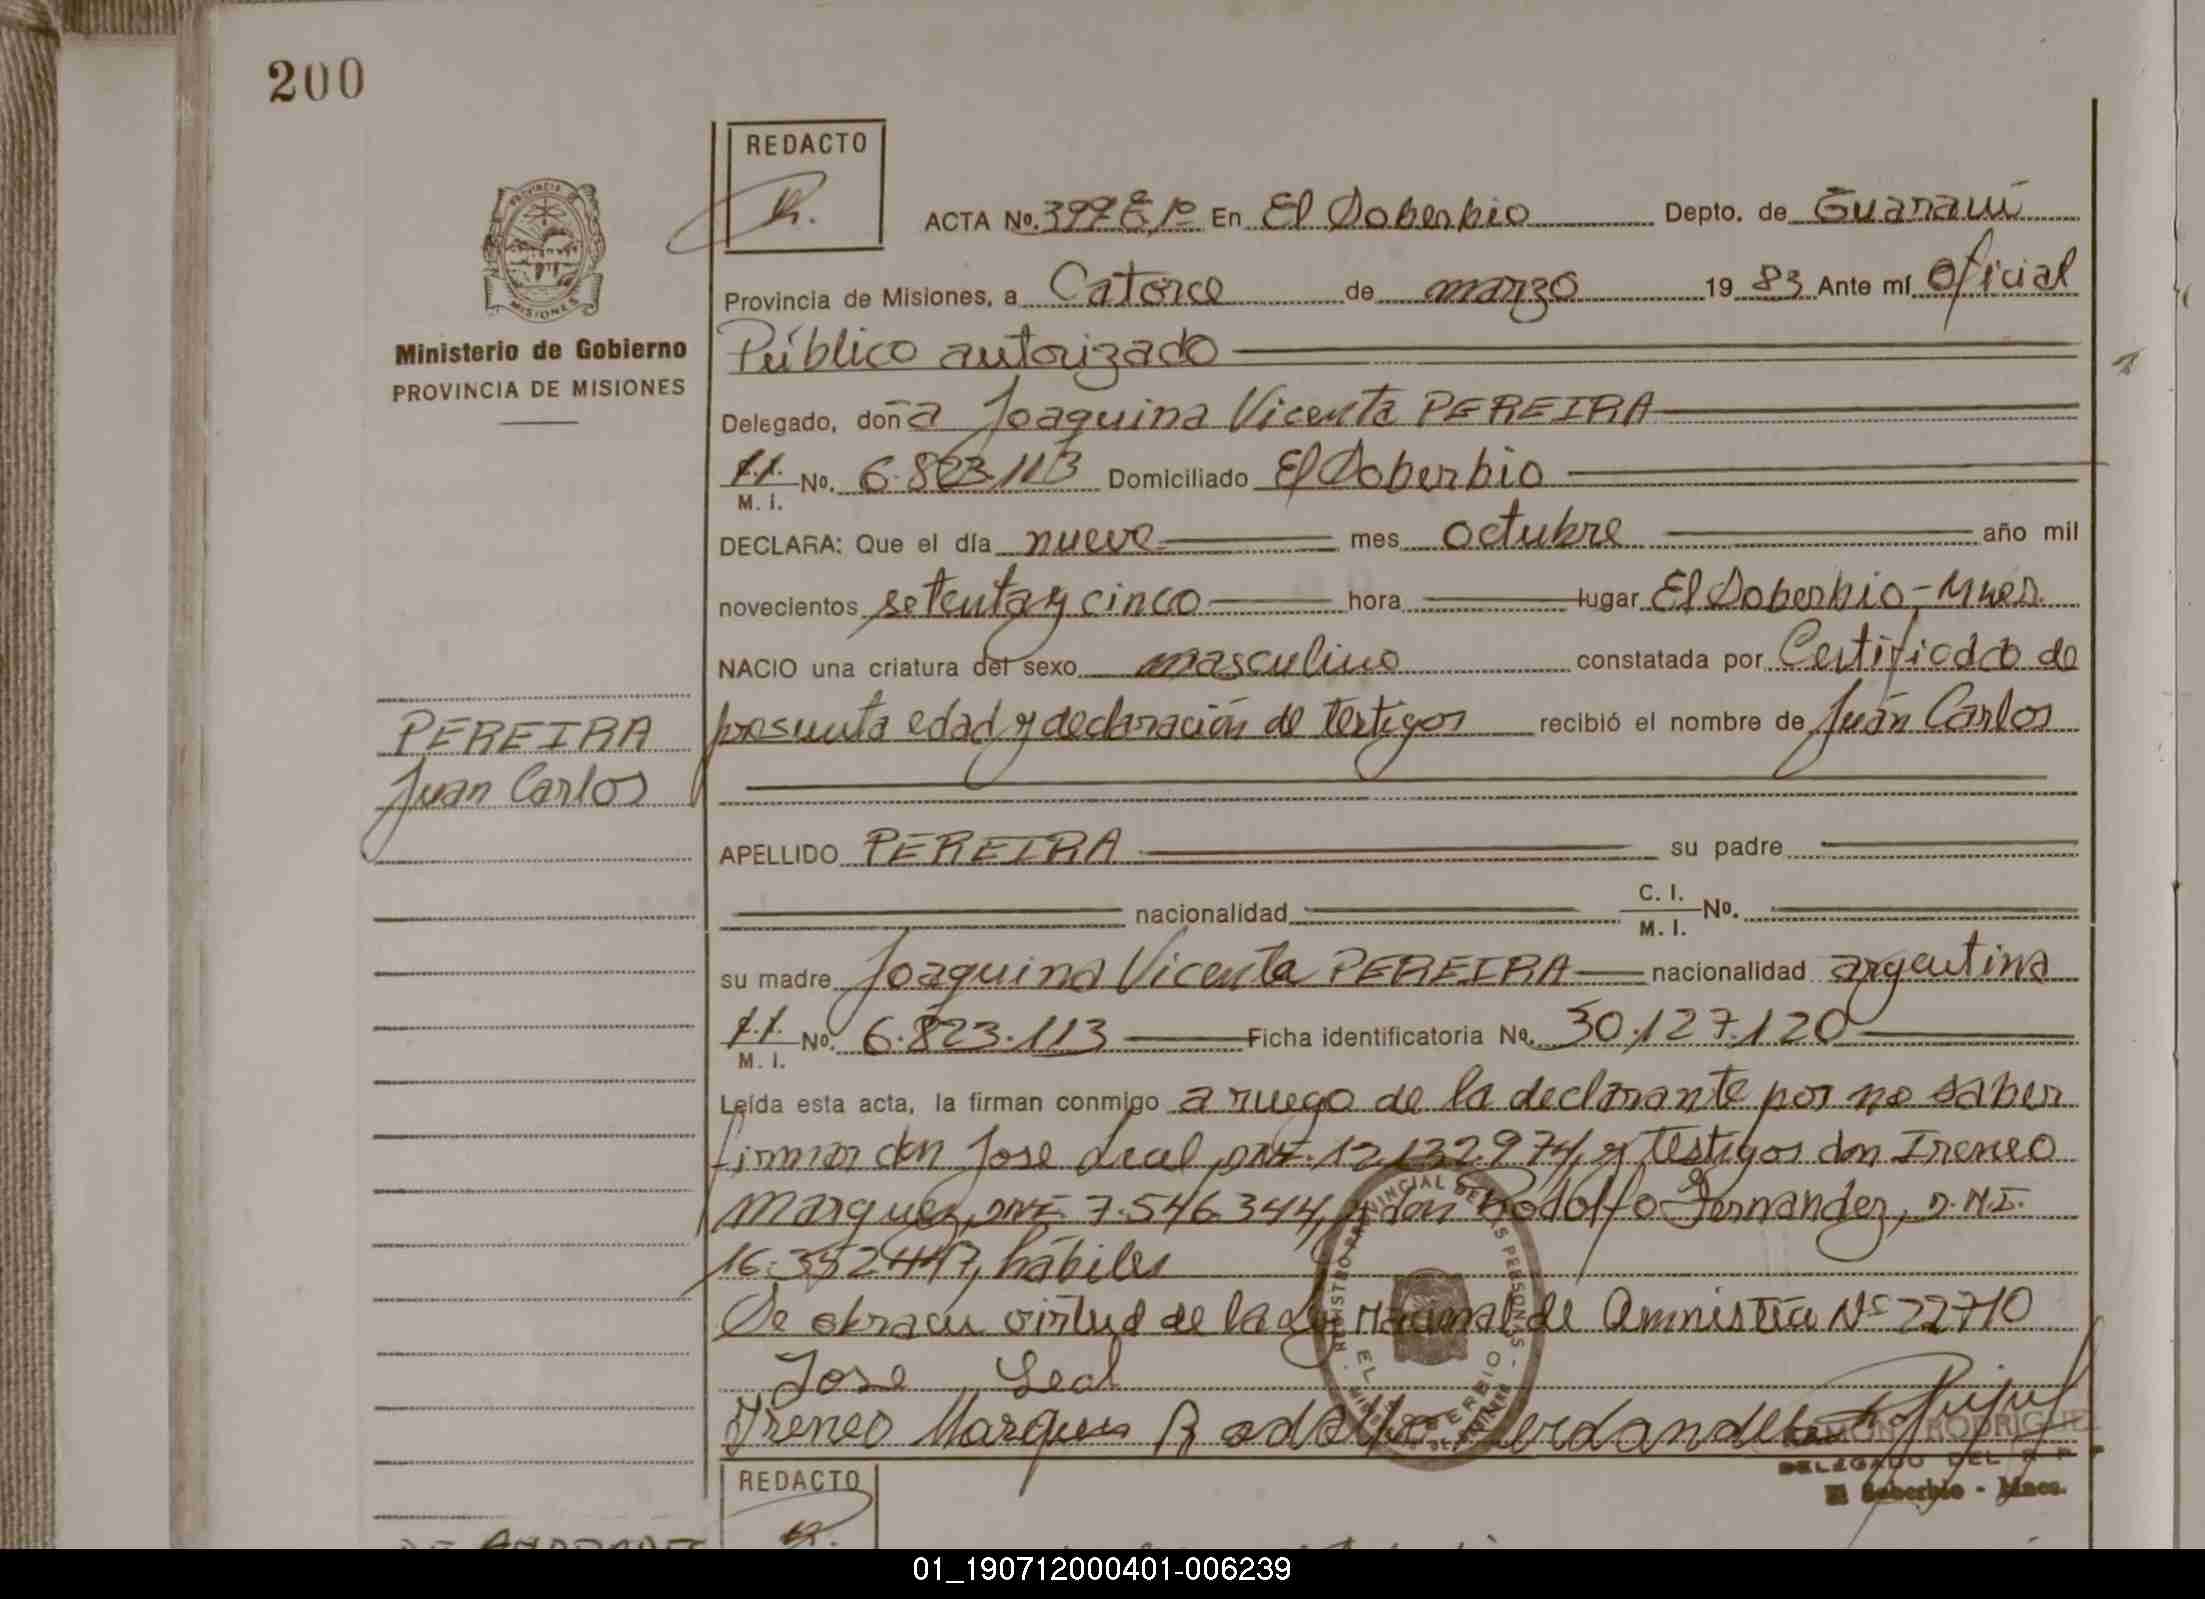 200
REDACTO
ACTA Nº. 399 Eº 1º En El Soberbio Depto. de Guaraní
Provincia de Misiones, a Catorce de marzo 19 83 Ante mí Oficial
Público autorizado
Ministerio de Gobierno
PROVINCIA DE MISIONES
Delegado, doña Joaquina Vicenta PEREIRA
M. I. Nº. 6.823.113 Domiciliado El Soberbio
DECLARA: Que el día nueve mes octubre año mil
novecientos setenta y cinco hora lugar El Soberbio - Mnes.
NACIO una criatura del sexo masculino constatada por Certificado de
presunta edad y declaración de testigos recibió el nombre de Juan Carlos
PEREIRA
Juan Carlos
APELLIDO PEREIRA su padre
nacionalidad C. I. M. I. Nº.
su madre Joaquina Vicenta PEREIRA nacionalidad argentina
M. I. Nº. 6.823.113 Ficha identificatoria Nº. 30.127.120
Leída esta acta, la firman conmigo a ruego de la declarante por no saber
firmar don Jose Leal, DNI. 12.132.974, y testigos don Ireneo
Marquez, DNI. 7.546.344, y don Rodolfo Fernandez, D.N.I.
16.352.447, hábiles
Se obra en virtud de la Ley Nacional de Amnistía Nº 22710
Jose Leal
Ireneo Marques Rodolfo
REGISTRO PROVINCIAL DE LAS PERSONAS
EL SOBERBIO
RAMON RODRIGUEZ
DELEGADO DEL R. P.
El Soberbio - Mnes.
REDACTO
01_190712000401-006239